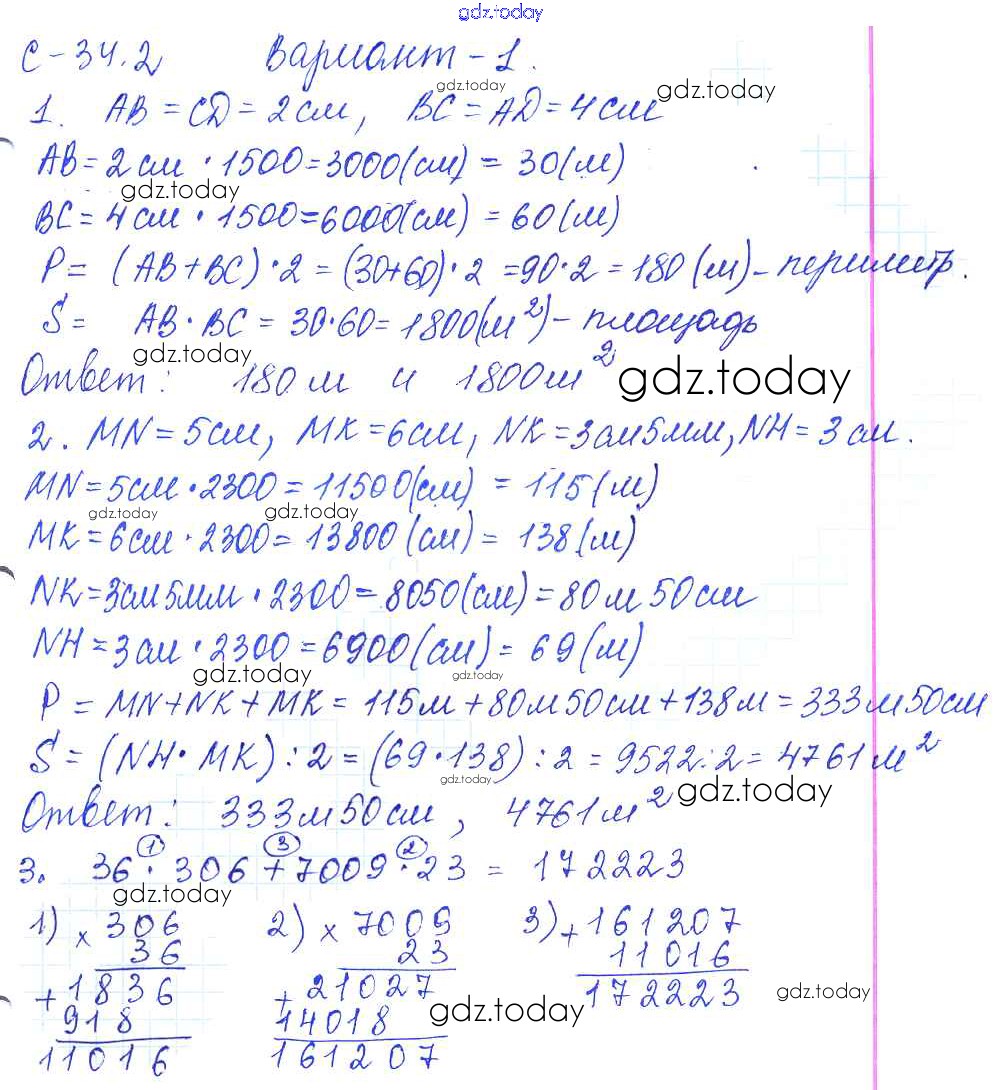 gdz.today
С-34.2 Вариант-1.
gdz.today gdz.today
1. AB = CD = 2 см, BC = AD = 4 см
AB = 2 см · 1500 = 3000 (см) = 30 (м)
gdz.today
BC = 4 см · 1500 = 6000 (см) = 60 (м)
P = (AB + BC) · 2 = (30+60) · 2 = 90 · 2 = 180 (м) - периметр.
S = AB · BC = 30·60 = 1800 (м²) - площадь
gdz.today
Ответ: 180 м и 1800 м²
gdz.today
2. MN = 5 см, MK = 6 см, NK = 3 см 5 мм, NH = 3 см.
MN = 5 см · 2300 = 11500 (см) = 115 (м)
gdz.today gdz.today
MK = 6 см · 2300 = 13800 (см) = 138 (м)
NK = 3 см 5 мм · 2300 = 8050 (см) = 80 м 50 см
NH = 3 см · 2300 = 6900 (см) = 69 (м)
gdz.today gdz.today
P = MN + NK + MK = 115 м + 80 м 50 см + 138 м = 333 м 50 см
S = (NH · MK) : 2 = (69 · 138) : 2 = 9522 : 2 = 4761 м²
gdz.today gdz.today
Ответ: 333 м 50 см, 4761 м²
1 3 2
3. 36 · 306 + 7009 · 23 = 172223
gdz.today
1) × 306 2) × 7009 3) + 161207
36 23 11016
+ 1836 + 21027 172223
gdz.today gdz.today
918 14018
11016 161207